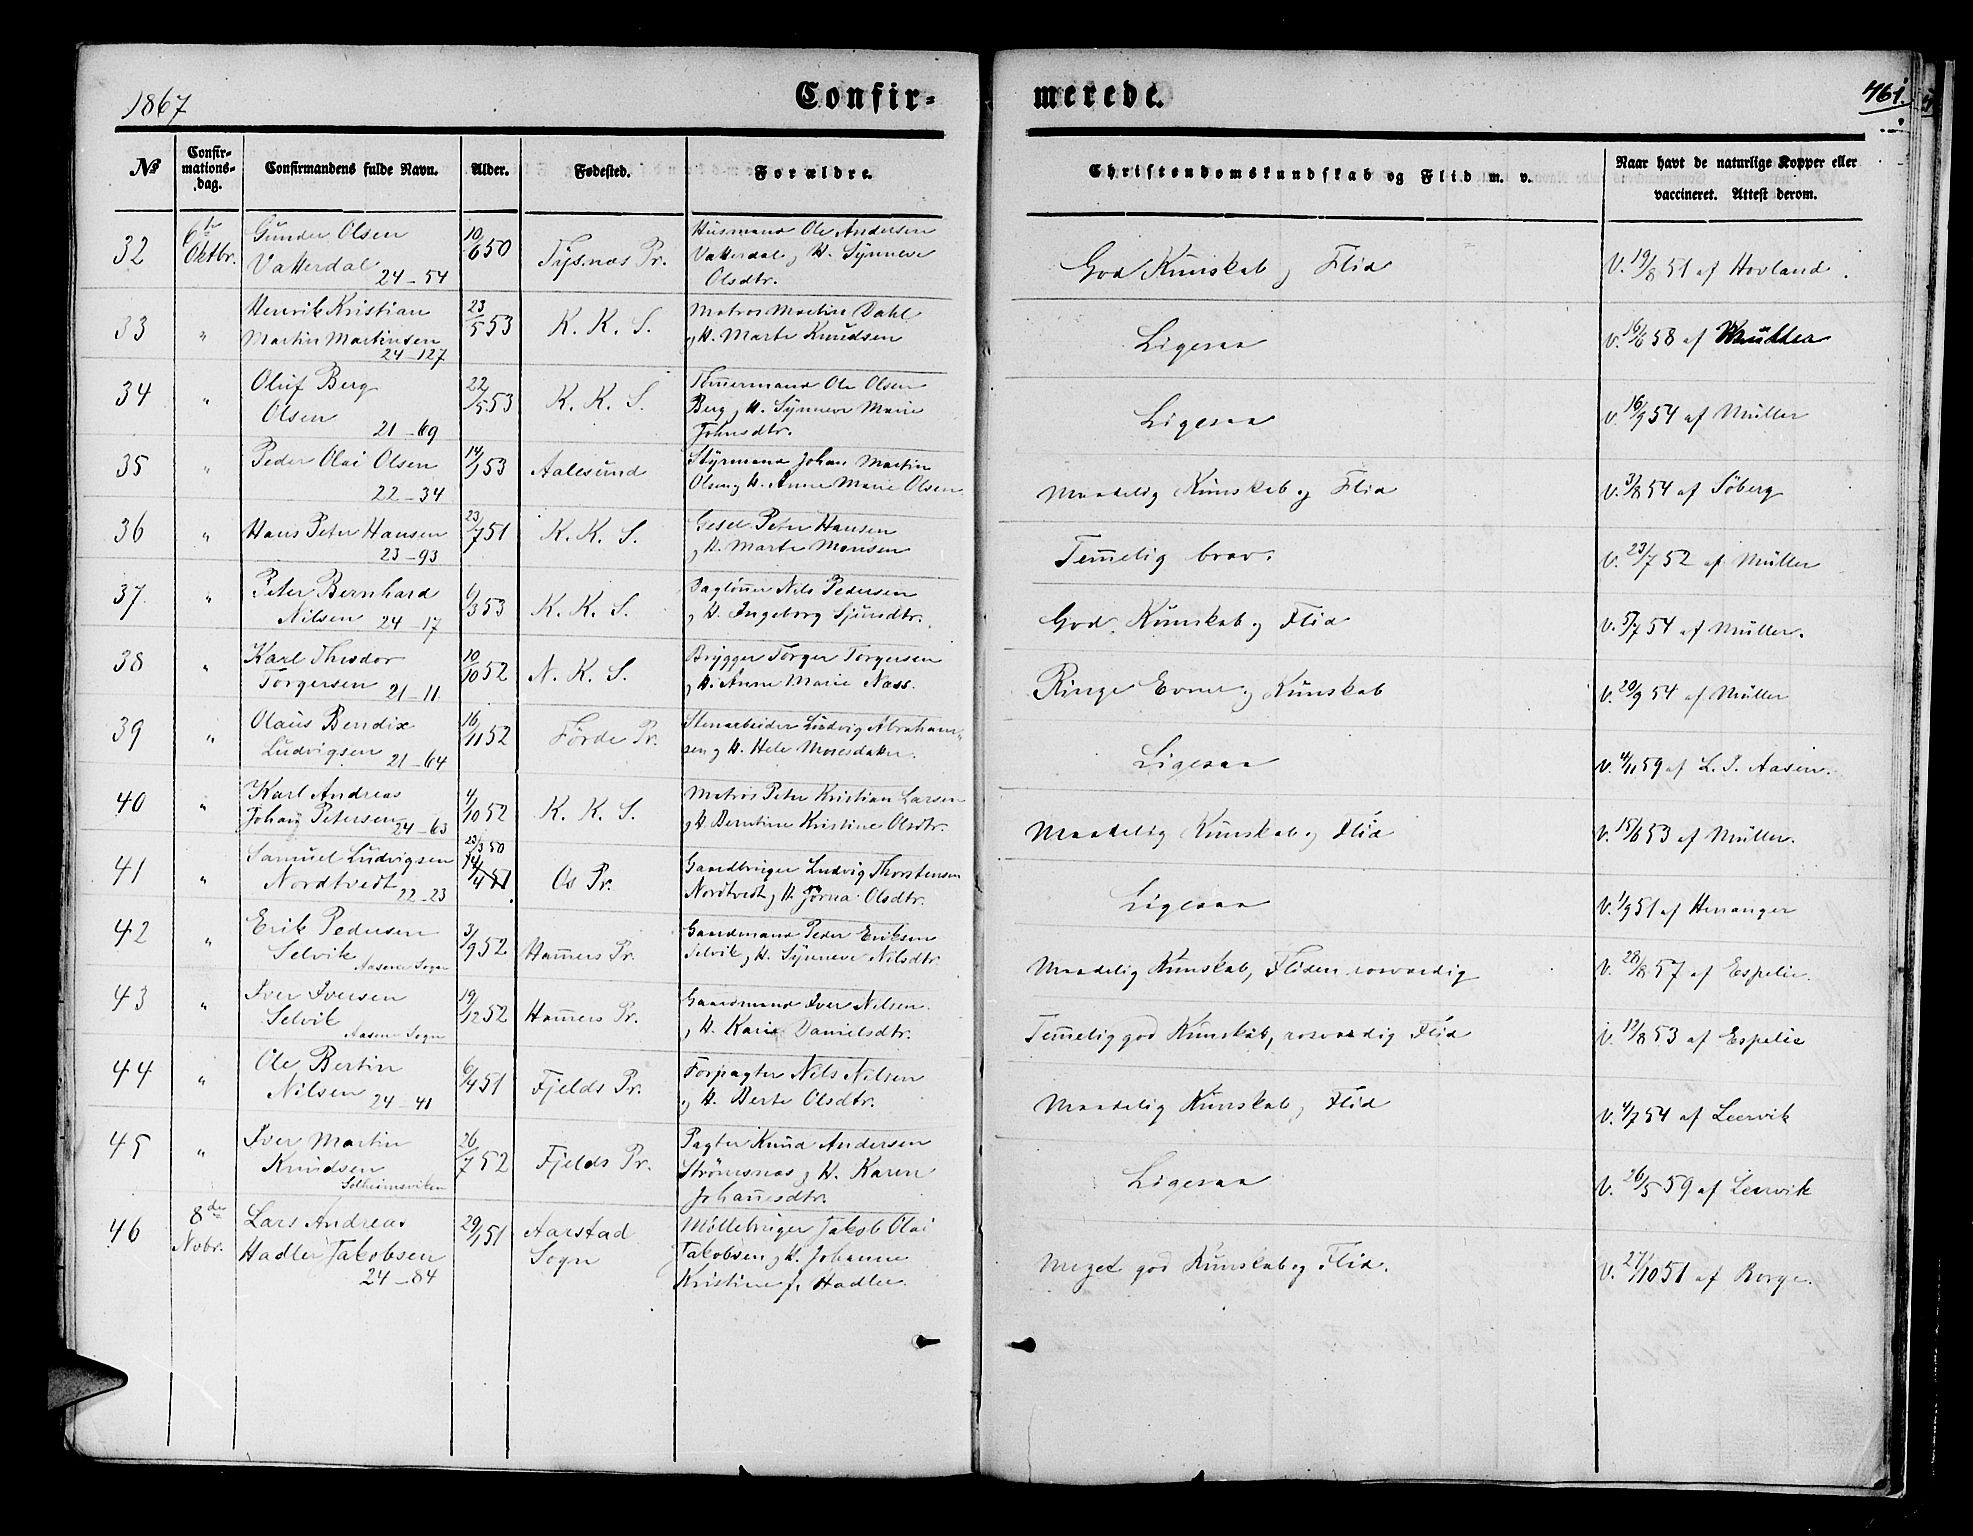 1867
Confir-
merede.
461.
№
Confir-
mations-
dag.
Confirmandens fulde Navn.
Alder.
Fødested.
Forældre.
Christendomskundskab og Flid m. v.
Naar havt de naturlige Kopper eller
vaccineret. Attest derom.
32
6te
Oktbr.
Gunder Olsen
Vatterdal 24-54
10/6 50
Tysnæs Pr.
Husmand Ole Andersen
Vatterdal og H. Synneve
Olsdtr.
God Kunskab og Flid
V. 19/8 51 af Hovland
33
"
Henrik Kristian
Martin Martinsen
24-127
23/5 53
K. K. S.
Matros Martin Dahl
og H. Marte Knudsen
Ligesaa
V. 16/6 58 af
34
"
Oluf Berg
Olsen
21-69
22/5 53
K. K. S.
Tømermand Ole Olsen
Berg og H. Synneve Marie
Johnsdtr.
Ligesaa
V. 16/9 54 af Müller
35
"
Peder Olai Olsen
22-34
14/1 53
Aalesund
Styrmand Johan Martin
Olsen og H. Anne Marie Olsen
Maadelig Kunskab og Flid
V. 3/8 54 af Söberg
36
"
Hans Peter Hansen
23-93
23/7 51
K. K. S.
Gesel Peter Hansen
og H. Marte Monsen
Temelig brav.
V. 23/7 52 af Müller
37
"
Peter Bernhard
Nilsen 24-17
6/3 53
K. K. S.
Dagløner Nils Pedersen
og H. Ingeborg Sjursdtr.
God Kunskab og Flid
V. 5/7 54 af Müller.
38
"
Karl Thedor
Torgersen 21-11
10/10 52
N. K. S.
Brygger Torger Torgersen
og H. Anne Marie Næss.
Ringe Evner og Kunskab
V. 20/9 54 af Müller
39
"
Olaus Bendix
Ludvigsen 21-64
16/11 52
Førde Pr.
Stenarbeider Ludvig Abraham-
sen og H. Hele Mosesdatter.
Ligesaa
V. 4/11 59 af L. I. Aasen.
40
"
Karl Andreas
Johan Petersen 24-63
4/10 52
K. K. S.
Matros Peter Kristian Larsen
og H. Berntine Kristine Olsdtr.
Maadelig Kunskab og Flid
V. 15/6 53 af Müller.
41
"
Samuel Ludvigsen
Nordtvedt 22-23
23/3 50
14/4 51
Os Pr.
Gaardbruger Ludvig Thorstensen
Nordtvedt og H. Jorna Olsdtr.
Ligesaa
V. 1/9 51 af Heranger
42
"
Erik Pedersen
Selvik
Aasene Sogn
3/9 52
Hamers Pr.
Gaardmand Peder Eriksen
Selvik og H. Synneve Nilsdtr
Maadelig Kunskab, Fliden rosværdig
V. 28/8 57 af Espelie.
43
"
Iver Iversen
Selvik
Aasene Sogn
19/12 52
Hamers Pr.
Gaardmand Iver Nilsen
og H. Kari Danielsdtr.
Temelig god Kunskab, rosværdig Flid
V. 12/8 53 af Espelie
44
"
Ole Bertin
Nilsen 24-41
6/4 51
Fjelds Pr.
Forpagter Nils Nilsen
og H. Berte Olsdtr.
Maadelig Kunskab og Flid
V. 4/7 54 af Leervik
45
"
Iver Martin
Knudsen
Solheimsviken
26/7 52
Fjelds Pr.
Pagter Knud Andersen
Strømsnæs og H. Karen
Johanesdtr.
Ligesaa
V. 26/5 59 af Leervik
46
8de
Nobr.
Lars Andreas
Hadler Jakobsen
24-84
29/1 51
Aarstad
Sogn
Møllebruger Jakob Olai
Jakobsen og H. Johanne
Kristine f. Hadler.
Meget god Kunskab og Flid.
V. 27/10 51 af Borge.